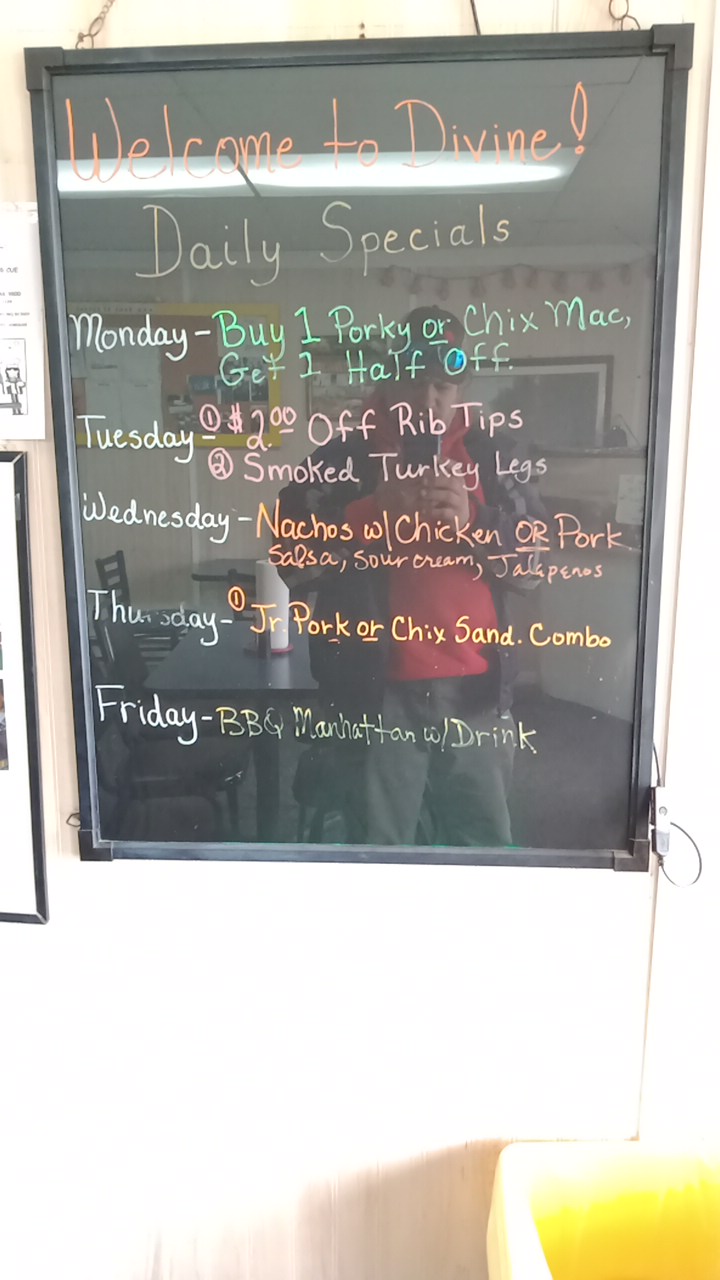 Welcome to Divine!
Daily Specials
Monday - Buy 1 Porky or Chix Mac,
Get 1 Half Off.
Tuesday - ① $2.00 Off Rib Tips
② Smoked Turkey Legs
Wednesday - Nachos w/Chicken OR Pork
Salsa, Sour cream, Jalapenos
Thursday - ① Jr. Pork or Chix Sand. Combo
Friday - BBQ Manhattan w/Drink